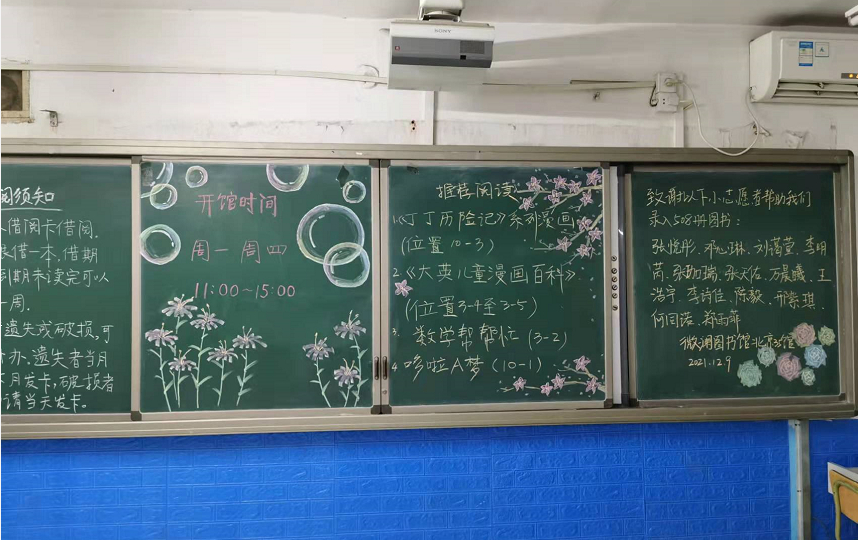 阅须知
借阅卡借阅.
借一本,借期
到期未读完可以
一周.
遗失或破损,可
办.遗失者当月
月发卡,破损者
请当天发卡。
开馆时间
周一 周四
11:00~15:00
推荐阅读
1.《丁丁历险记》系列漫画
(位置10-3)
2.《大英儿童漫画百科》
(位置3-4至3-5)
3. 数学帮帮忙(3-2)
4 哆啦A梦(10-1)
致谢以下小志愿者帮助我们
录入508册图书:
张悦彤. 邓心琳. 刘蔼萱. 李明
芮. 张珈瑞. 张天佑. 万晨曦. 王
浩宇. 李诗佳. 陈毅. 邢紫琪.
何同诺. 郑雨菲
微澜图书馆北京馆
2021.12.9
SONY